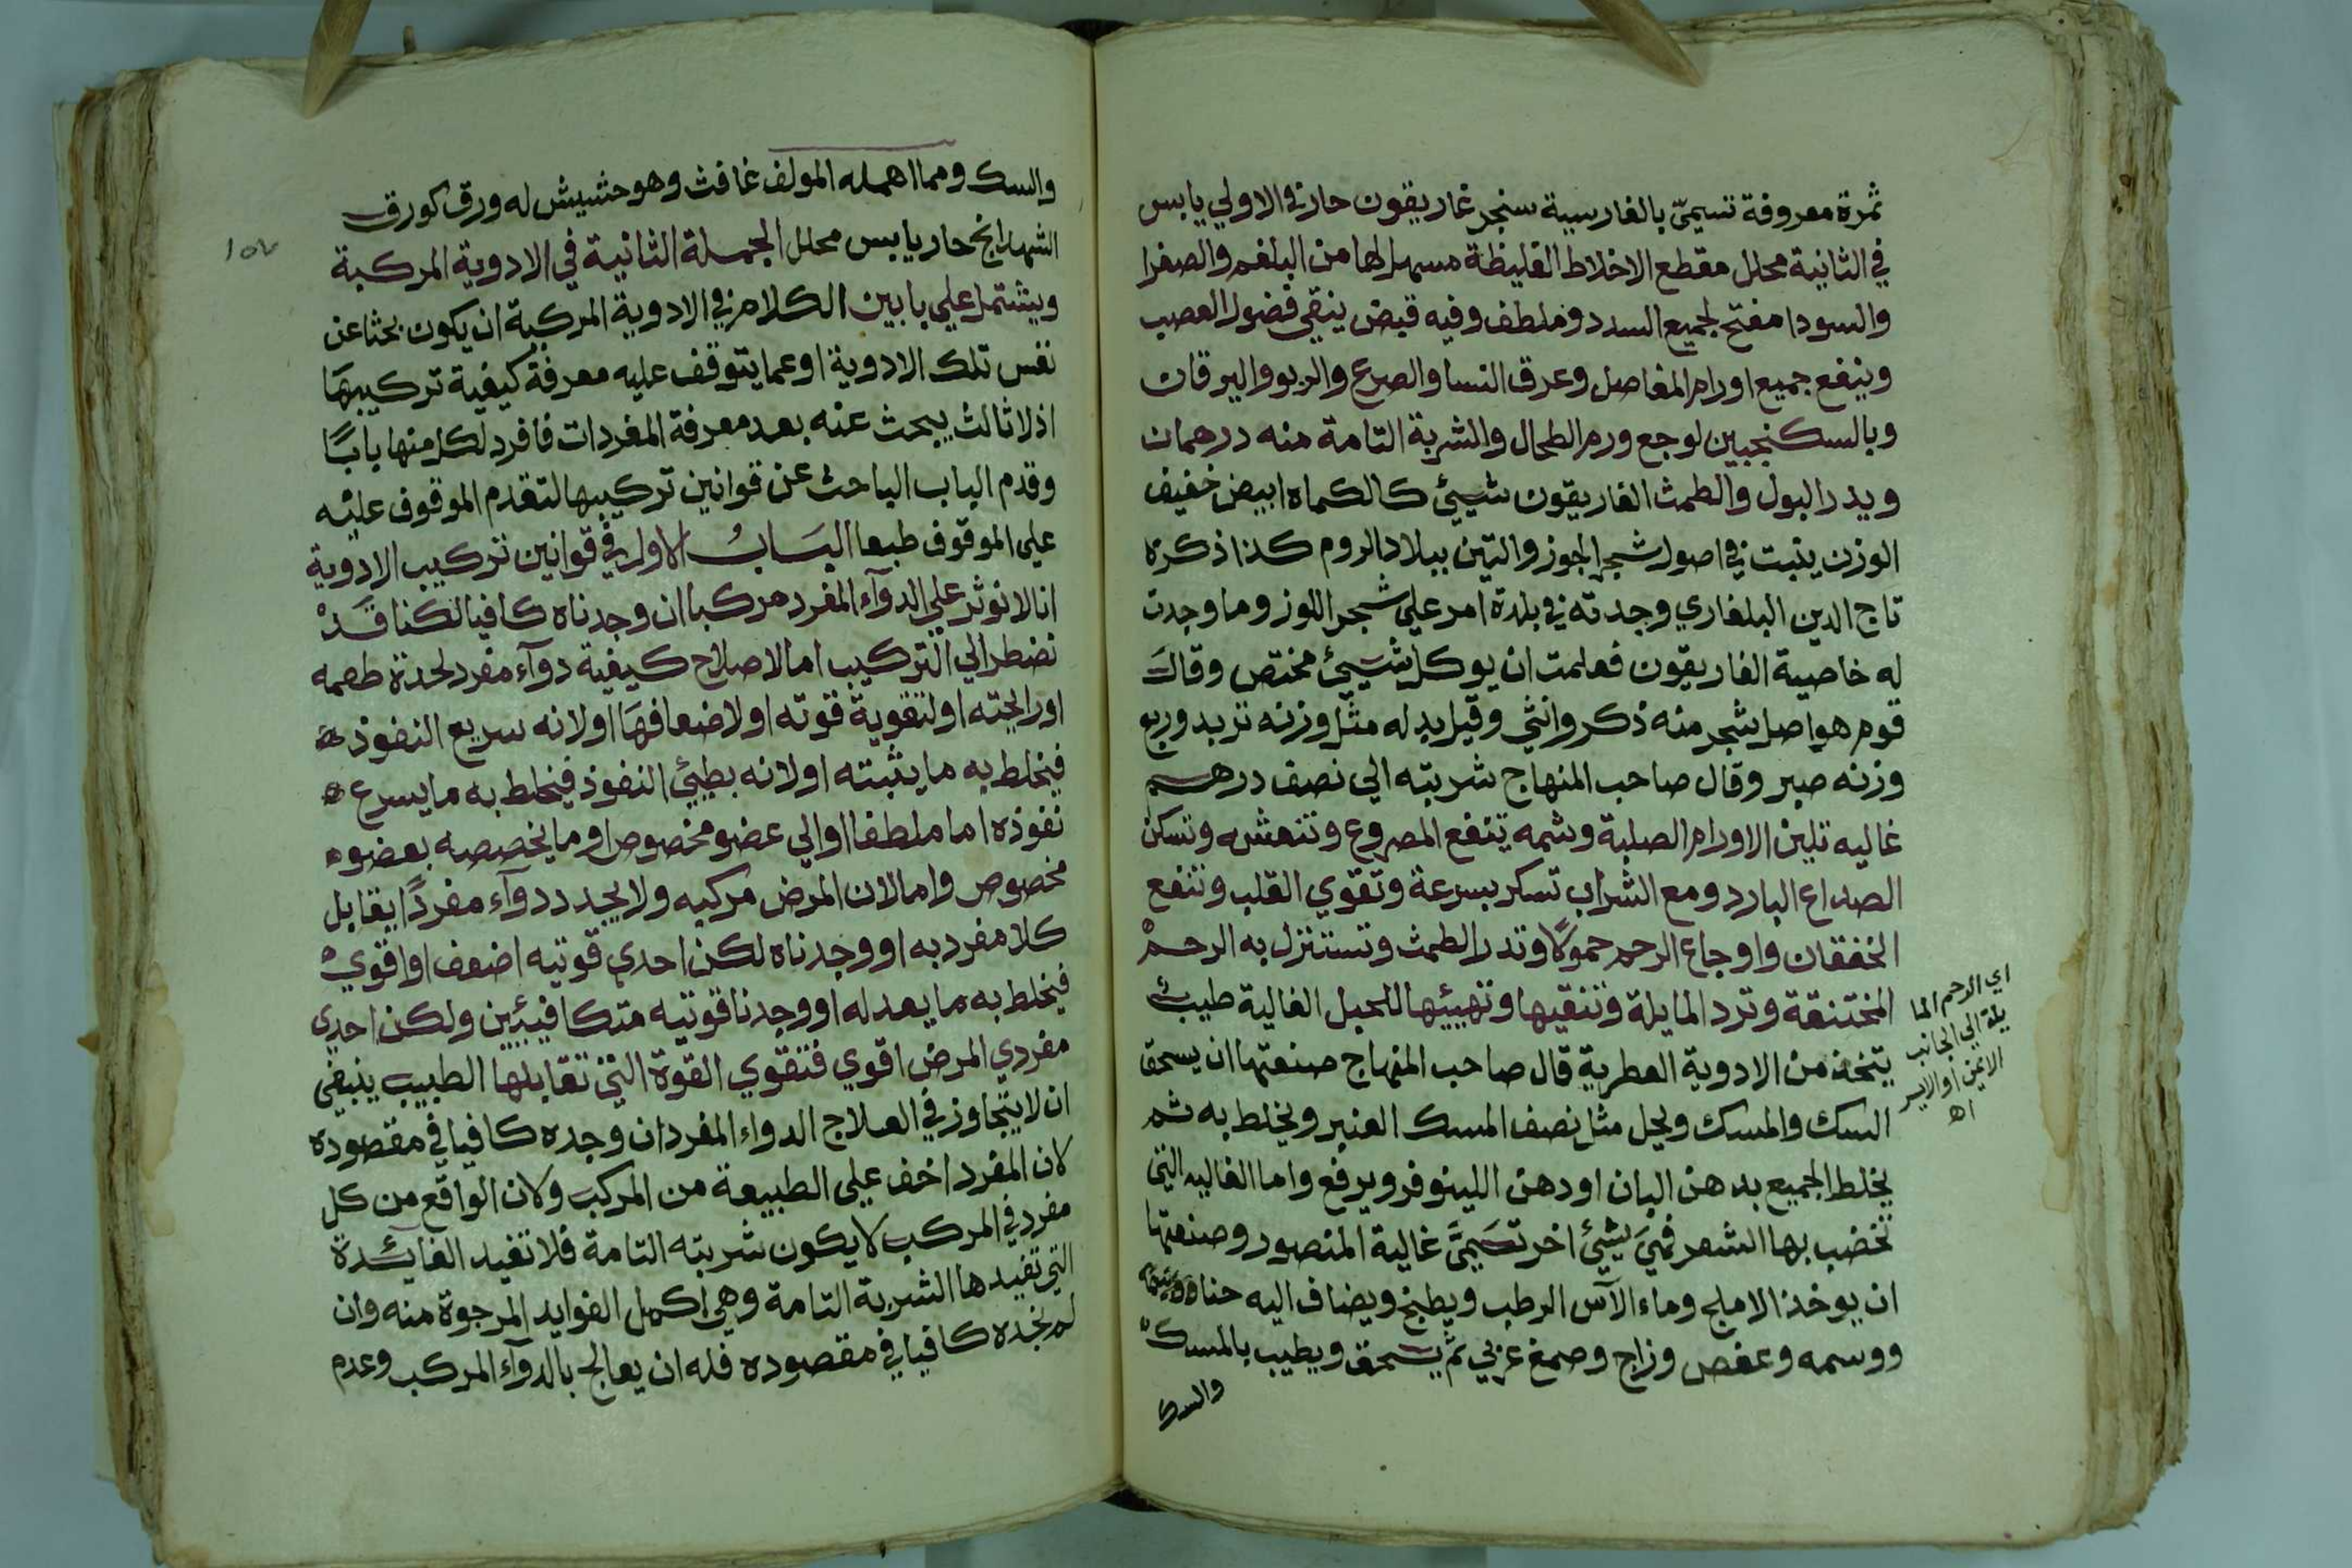 ثمرة معروفة تسمي بالفارسية سنجر غاريقون حار في الاولي يابس
في الثانية محلل مقطع الاخلاط الغليظة مسهل لها من البلغم والصفرا
والسودا مفتح لجميع السدد وملطف وفيه قبض ينقي فضول العصب
وينفع جميع اورام المفاصل وعرق النسا والصرع والربو واليرقان
وبالسكنجبين لوجع ورم الطحال والشربة التامة منه درهمان
ويدر البول والطمث الغاريقون شيئ كالكماه ابيض خفيف
الوزن ينبت في اصول شجر الجوز والتين ببلاد الروم كذا ذكره
تاج الدين البلغاري وجدته في بلدة امر علي شجر اللوز وما وجدت
له خاصية الغاريقون فعلمت ان يوكل شيئ مختص وقال
قوم هو اصل شجر منه ذكر وانثي وقيل بدله مثل وزنه تربد وربع
وزنه صبر وقال صاحب المنهاج شربته الي نصف درهم
غاليه تلين الاورام الصلبة وشمه ينفع المصروع وتنعشه وتسكن
الصداع البارد ومع الشراب تسكر بسرعة وتقوي القلب وتنفع
الخفقان واوجاع الرحم حمولًا وتدر الطمث وتستنزل به الرحمْ
المختنقة وترد المايلة وتنقيها وتهيئها للحبل الغالية طيب
يتخذ من الادوية العطرية قال صاحب المنهاج صنعتها ان يسحق
السك والمسك ويحل مثل نصف المسك العنبر ويخلط به ثم
يخلط الجميع بدهن البان او دهن اللينوفر ويرفع واما الغاليه التي
تخضب بها الشعر فهيَ شيئ اخر تسَميَّ غالية المنصور وصنعتها
ان يوخذ الاملج وماء الآس الرطب ويطبخ ويضاف اليه حنا
ووسمه وعفص وزاج وصمغ عربي ثم يسحق ويطيب بالمسك
والسك
اي الرحم الما
يلة الي الجانب
الايمن او الايسر
اه
والسك ومما اهمله المولف غافث وهو حشيش له ورق كورق
الشهدانج حار يابس محلل الجملة الثانية في الادوية المركبة
ويشتمل علي بابين الكلام في الادوية المركبة ان يكون بحثا عن
نفس تلك الادوية او عما يتوقف عليه معرفة كيفية تركيبهَا
اذ لا ثالث يبحث عنه بعد معرفة المفردات فافرد لكل منها بابًا
وقدم الباب الباحث عن قوانين تركيبها لتقدم الموقوف عليْه
علي الموقوف طبعا البَابُ الاول في قوانين تركيب الادوية
انا لا نوثر علي الدوآء المفرد مركبا ان وجدناه كافيا لكنا قَدْ
نضطر الي التركيب اما لاصلاح كيفية دوآء مفرد لحدة طعمه
او رايحته او لتقوية قوته او لاضعافهَا او لانه سريع النفوذ
فيخلط به ما يثبته او لانه بطيئ النفوذ فيخلط به ما يسرع
نفوذه اما ملطفا او الي عضو مخصوص او ما يخصصه بعضو
مخصوص واما لان المرض مركبه ولا يجد دوآء مفردًا يقابل
كلا مفرد به او وجدناه لكن احدي قوتيه اضعف او اقوي
فيخلط به ما يعدله او وجدنا قوتيه متكافيئين ولكن احدي
مفردي المرض اقوي فتقوي القوة التي تقابلها الطبيب ينبغي
ان لا يتجاوز في العلاج الدواء المفرد ان وجده كافيا في مقصوده
لان المفرد اخف علي الطبيعة من المركب ولان الواقع من كل
مفرد في المركب لا يكون شربته التامة فلا تفيد الفائدة
التي تفيدها الشربة التامة وهي اكمل الفوايد المرجوة منه وان
لم يجده كافيا في مقصوده فله ان يعالج بالدوآء المركب وعدم